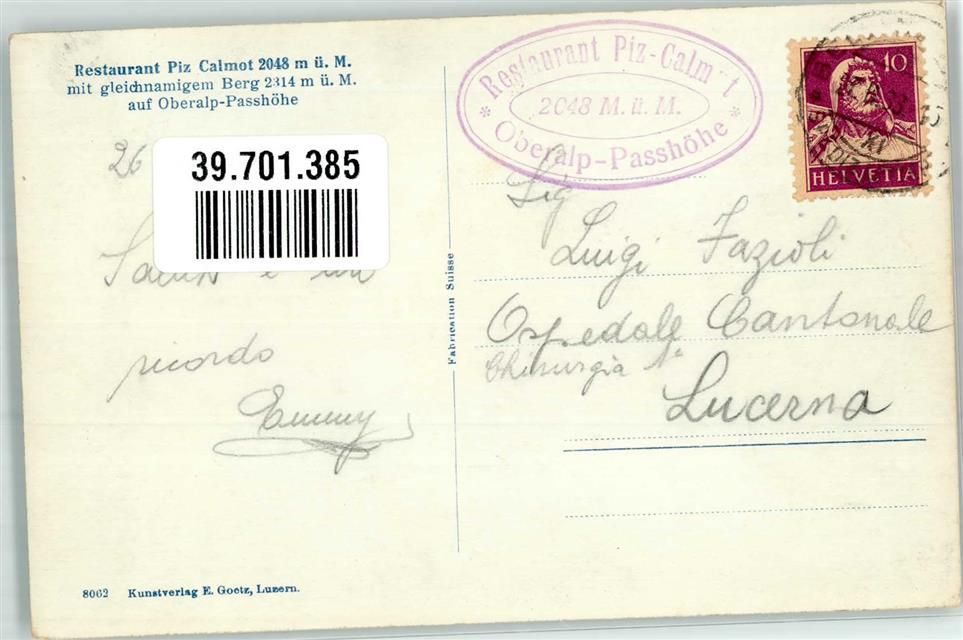 Restaurant Piz Calmot 2048 m ü. M.
mit gleichnamigem Berg 2314 m ü. M.
auf Oberalp-Passhöhe
26
39.701.385
Saluti e un
ricordo
Emmy
8062 Kunstverlag E. Goetz, Luzern.
Fabrication Suisse
* Restaurant Piz-Calm t *
2048 M. ü. M.
Oberalp-Passhöhe
10
HELVETIA
Sig
Luigi Fazioli
Ospedale Cantonale
Chirurgia
Lucerna